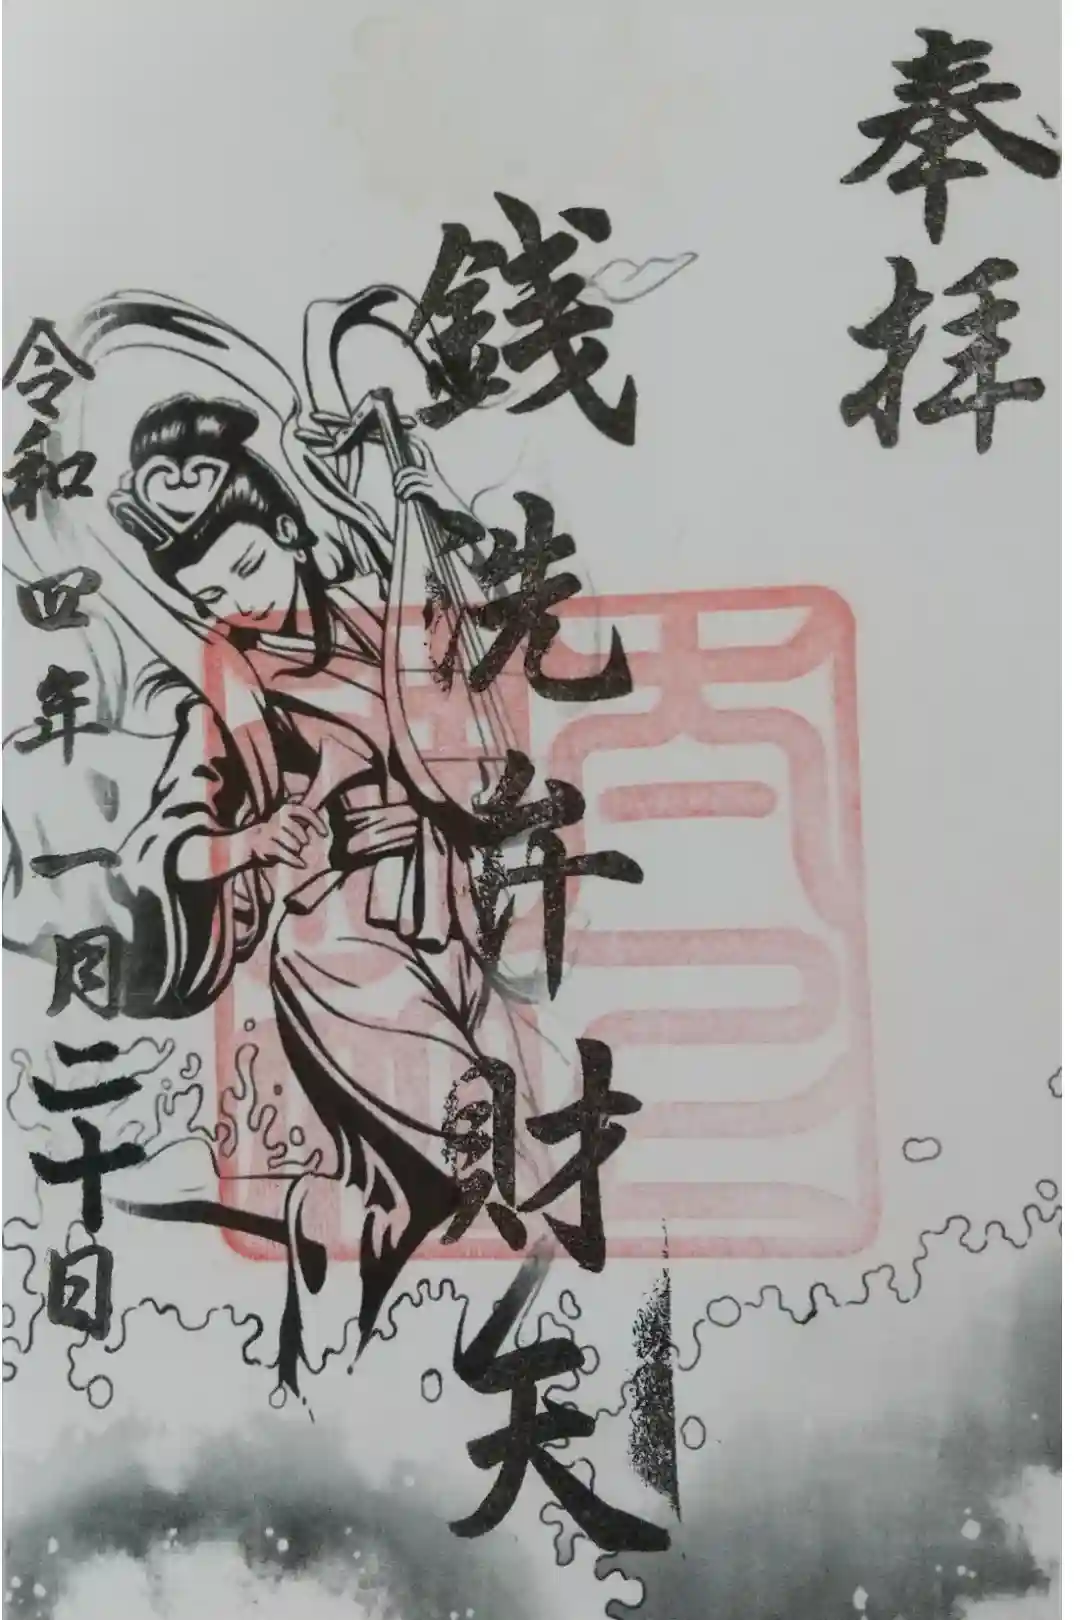 奉拝
銭洗弁財天
令和四年一月二十日